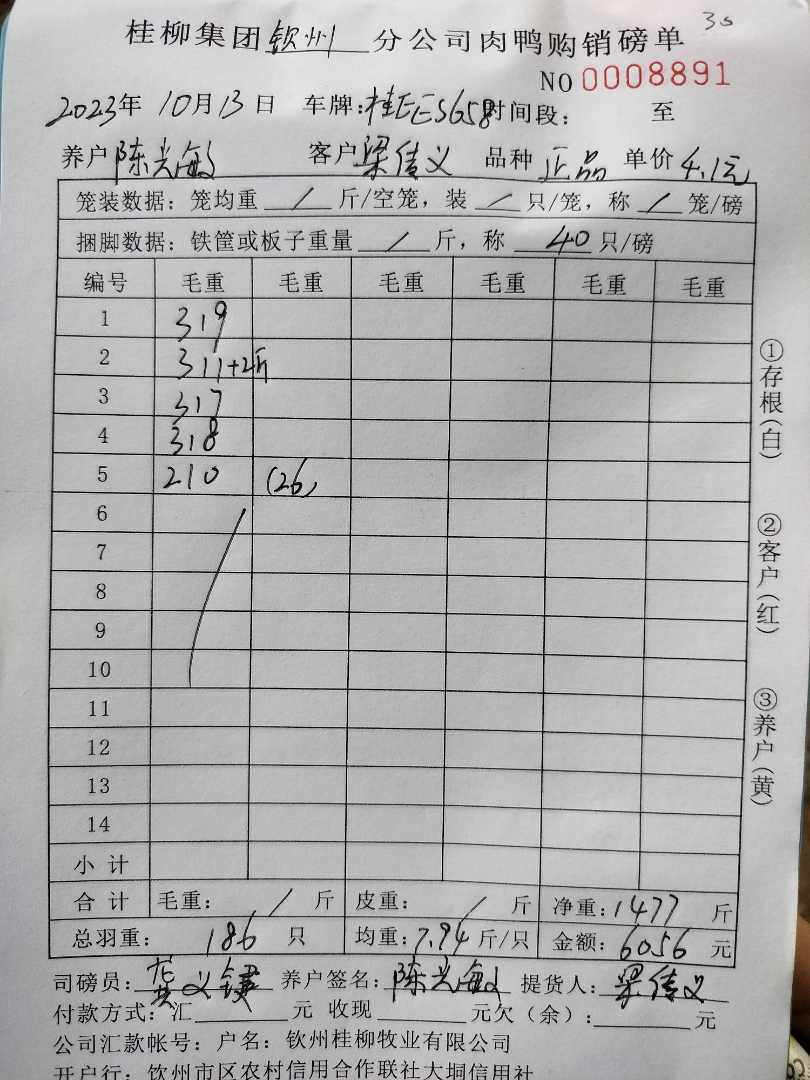 30
桂柳集团钦州分公司肉鸭购销磅单
NO 0008891
2023年10月13日 车牌:桂EES658时间段: 至
养户陈光敏 客户梁倩义 品种 正品 单价4.1元
笼装数据: 笼均重 / 斤/空笼, 装 / 只/笼, 称 / 笼/磅
捆脚数据: 铁筐或板子重量 / 斤, 称 40 只/磅
编号 毛重 毛重 毛重 毛重 毛重 毛重
1 319
2 311+2斤
3 317
4 318
5 210 (26)
6
7
8
9
10
11
12
13
14
小计
合计 毛重: / 斤 皮重: / 斤 净重:1477 斤
总羽重: 186 只 均重:7.94斤/只 金额:6056元
司磅员: 义 养户签名:陈光敏 提货人:梁倩义
付款方式:汇 元 收现 元欠(余): 元
公司汇款帐号: 户名: 钦州桂柳牧业有限公司
开户行: 钦州市区农村信用合作联社大垌信用社
①存根(白)
②客户(红)
③养户(黄)